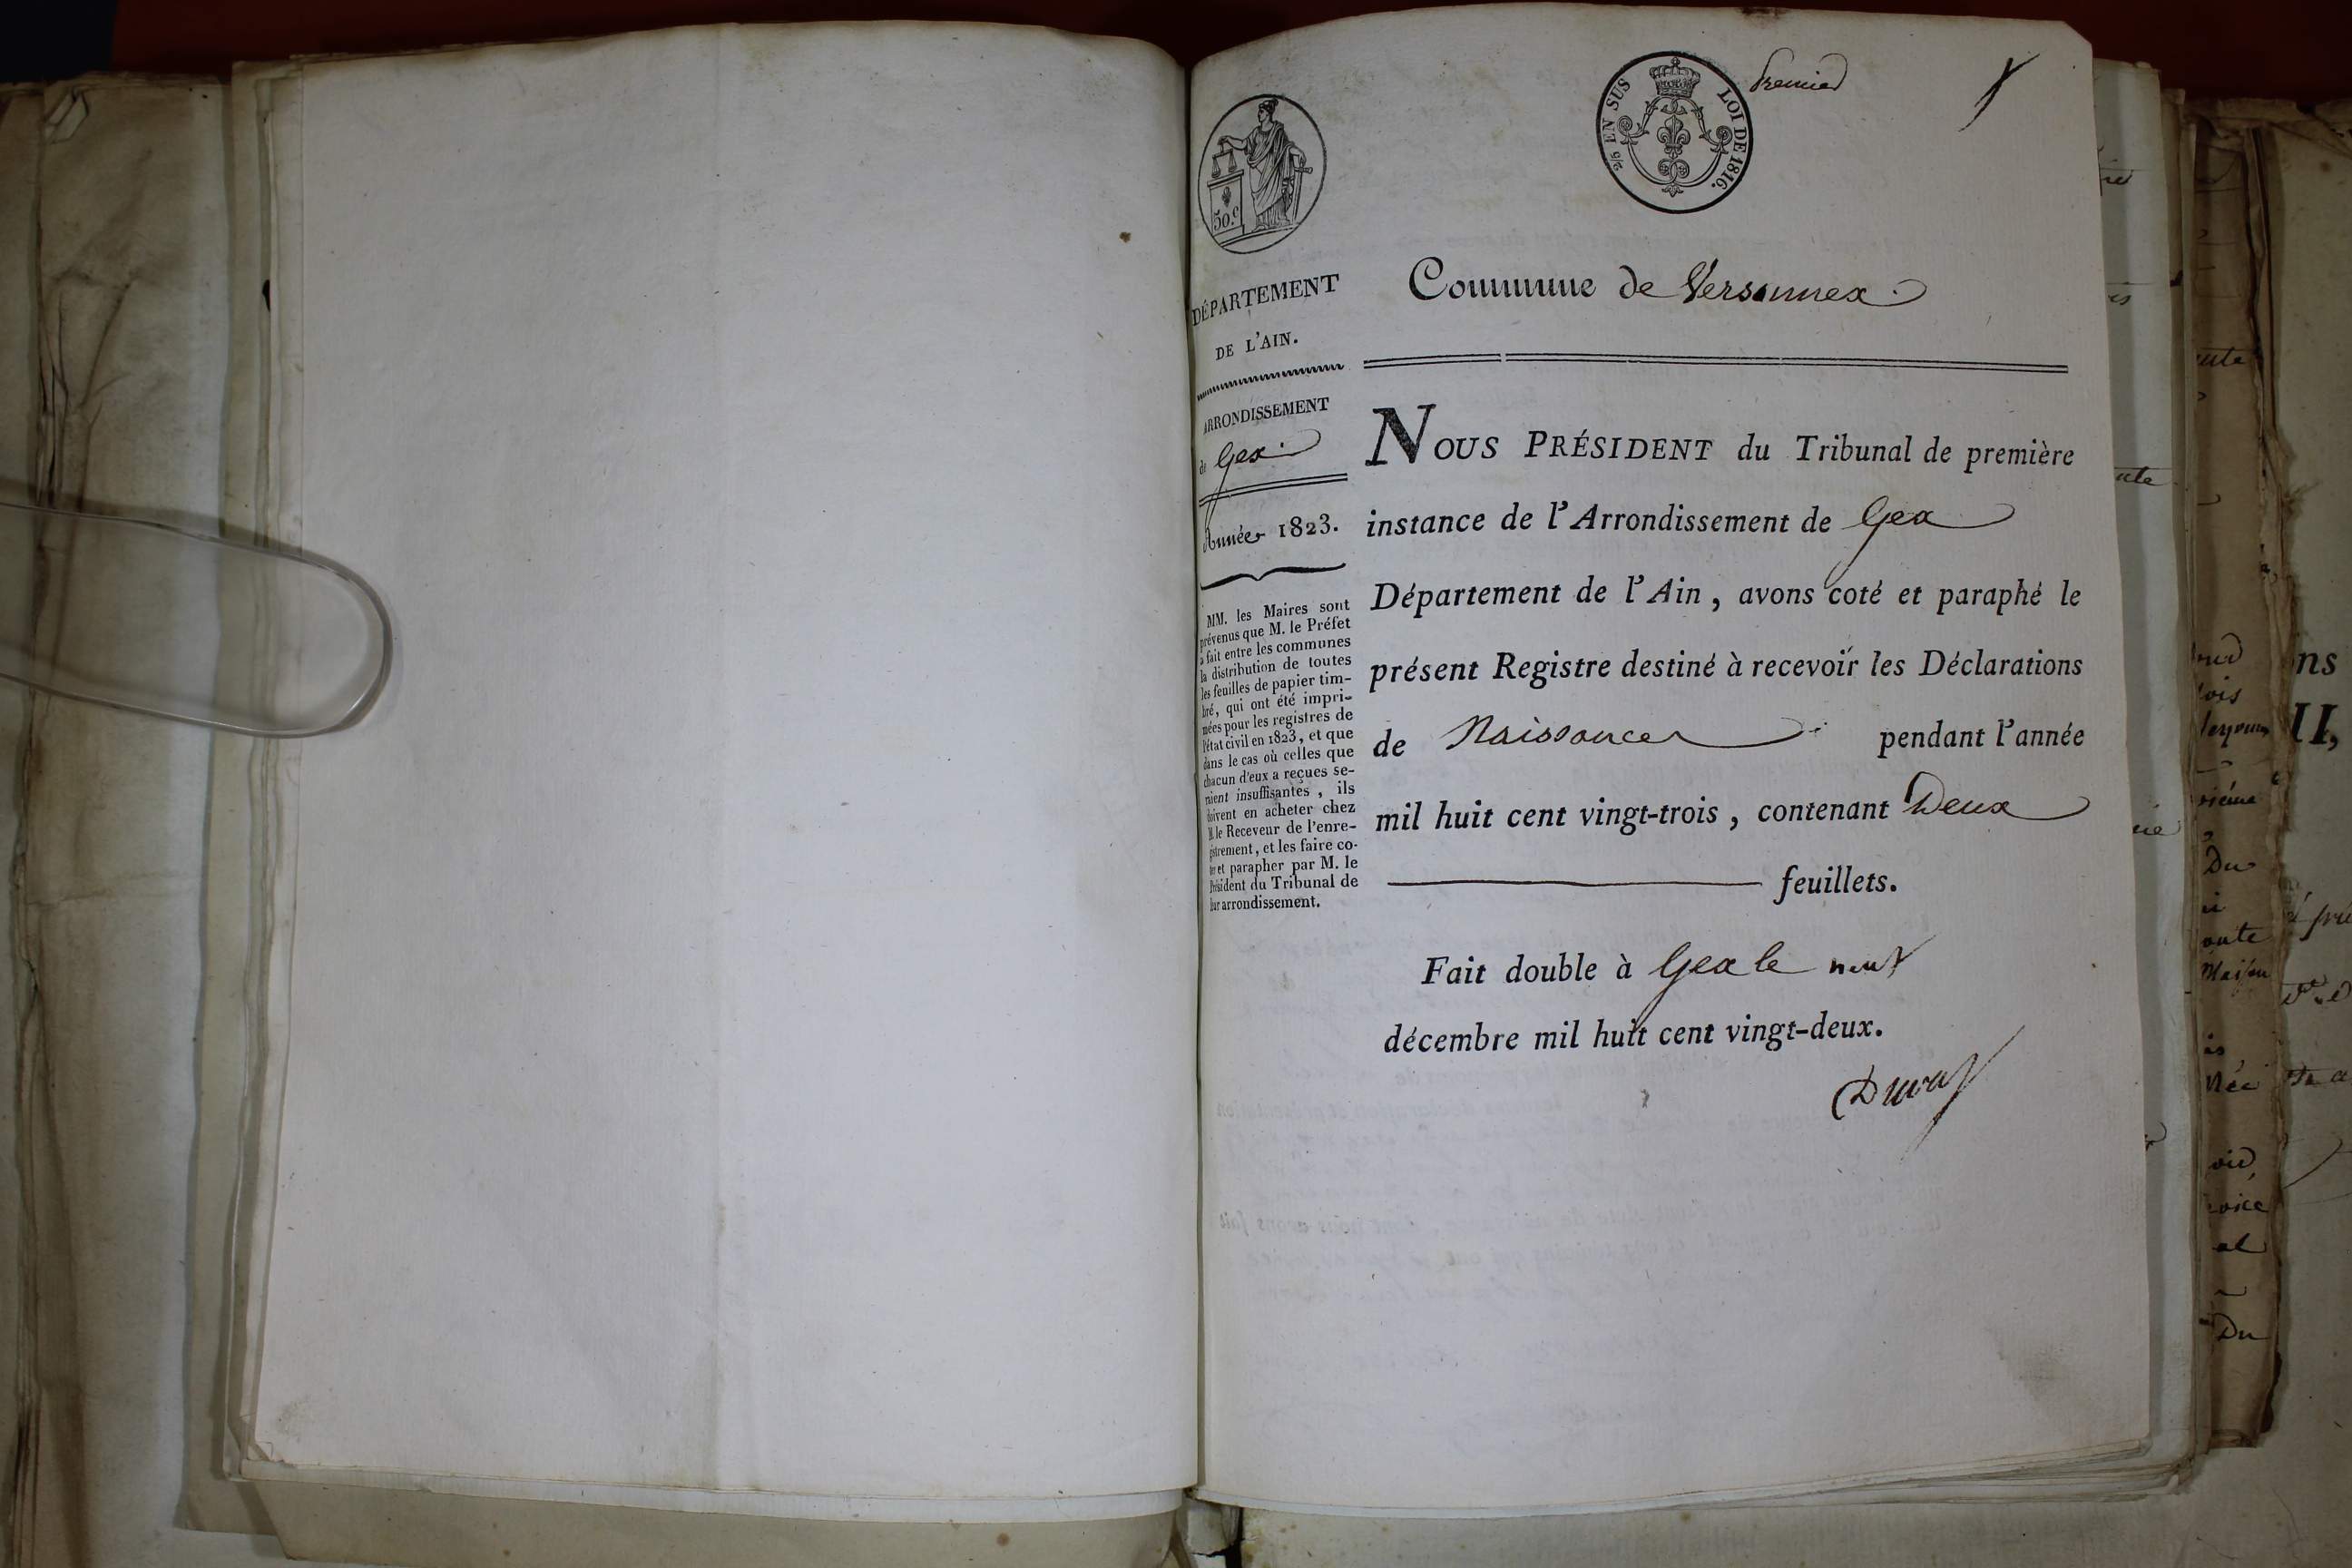 2/5 EN SUS
LOI DE 1816.
Premier
50.c
DÉPARTEMENT
DE L'AIN.
ARRONDISSEMENT
de Gex.
Année 1823.
MM. les Maires sont
prévenus que M. le Préfet
a fait entre les communes
la distribution de toutes
les feuilles de papier tim-
bré, qui ont été impri-
mées pour les registres de
l'état civil en 1823, et que
dans le cas où celles que
chacun d'eux a reçues se-
raient insuffisantes, ils
doivent en acheter chez
M. le Receveur de l'enre-
gistrement, et les faire co-
ter et parapher par M. le
Président du Tribunal de
leur arrondissement.
Commune de Versonnex.
NOUS PRÉSIDENT du Tribunal de première
instance de l'Arrondissement de Gex
Département de l'Ain, avons coté et paraphé le
présent Registre destiné à recevoir les Déclarations
de Naissances pendant l'année
mil huit cent vingt-trois, contenant Deux
feuillets.
Fait double à Gex le neuf
décembre mil huit cent vingt-deux.